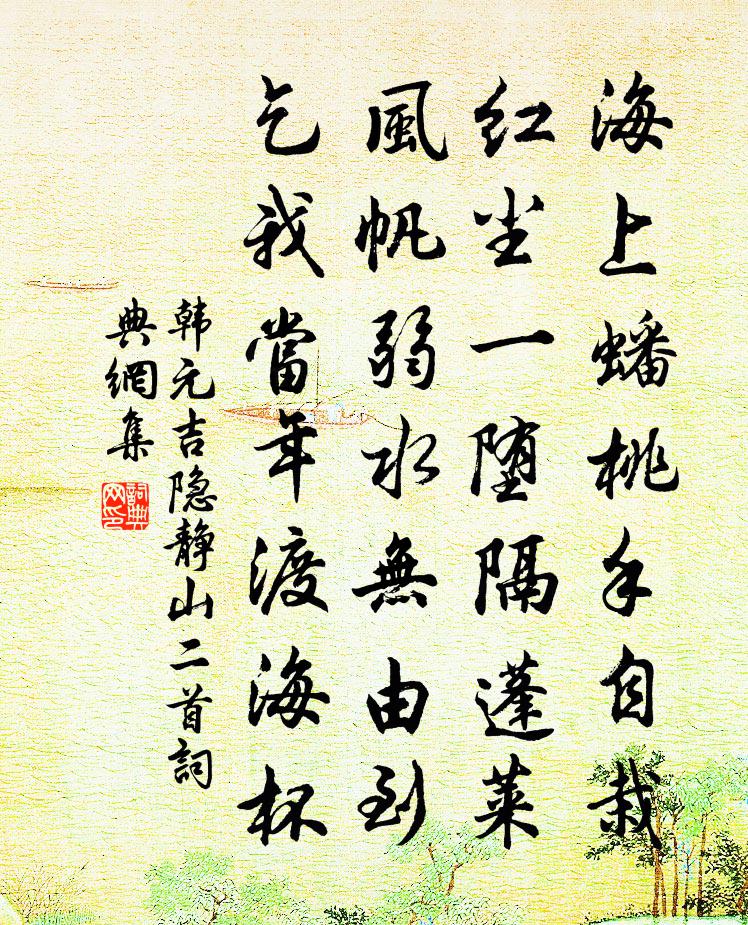 海上蟠桃手自栽
红尘一堕隔蓬莱
風帆弱水無由到
乞我當年渡海杯
韩元吉隐静山二首詞
典網集
詞典
网印